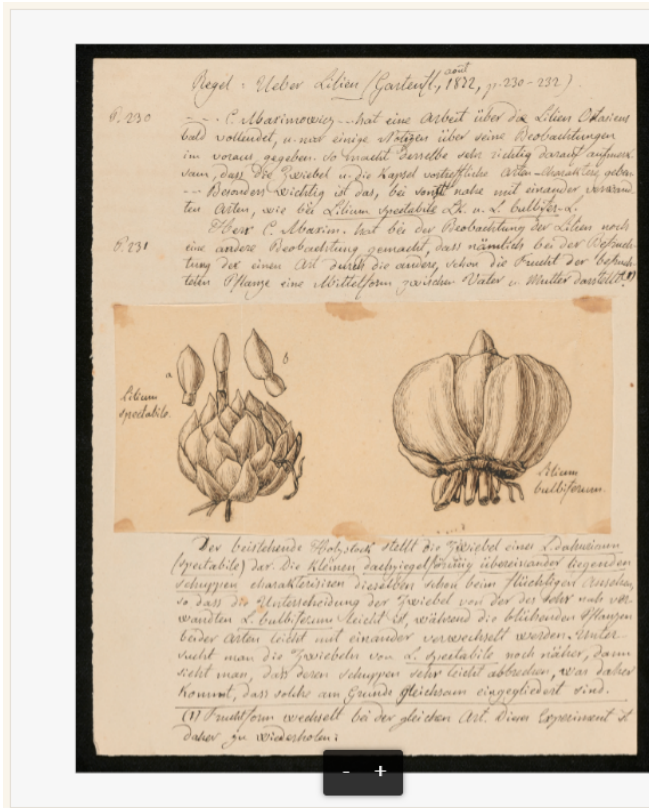 Regel: Ueber Lilien (Gartenfl., août 1872, p. 230-232).
P. 230
--- C. Maximowicz -- hat eine Arbeit über die Lilien Ostasiens
bald vollendet, u. nur einige Notizen über seine Beobachtungen
im voraus gegeben. So macht derselbe sehr richtig darauf aufmerk
sam, dass die Zwiebel u. die Kapsel vortreffliche Arten-Charaktere geben
-- Besonders wichtig ist das, bei sonst nahe mit einander verwand
ten Arten, wie bei Lilium spectabile Lk. u. L. bulbifer. L.
Herr C. Maxim. hat bei der Beobachtung der Lilien noch
P. 231
eine andere Beobachtung gemacht, dass nämlich bei der Befruch
tung der einen Art durch die andere, schon die Frucht der befruch
teten Pflanze eine Mittelform zwischen Vater u. Mutter darstellt. (1)
a
b
Lilium
spectabile.
Lilium
bulbiferum.
Der beistehende Holzstock stellt die Zwiebel eines L. dahuricum
(spectabile) dar. Die kleinen dachziegelförmig übereinander liegenden
schuppen charakterisiren dieselben schon beim flüchtigen Ansehen,
so dass die Unterscheidung der Zwiebel von der des sehr nah ver
wandten L. bulbiferum leicht ist, während die blühenden Pflanzen
beider Arten leicht mit einander verwechselt werden. Unter-
sucht man die Zwiebeln von L. spectabile noch näher, dann
sieht man, dass deren schuppen sehr leicht abbrechen, was daher
kommt, dass solche am Grunde gleichsam eingegliedert sind.
(1) Fruchtform wechselt bei der gleichen Art. Dieses Experiment ist
daher zu wiederholen:
- +